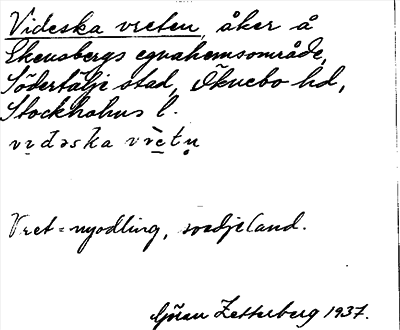 Videska vreten, åker å
Ekensbergs egnahemsområde,
Södertälje stad, Öknebo hd,
Stockholms l.
vıdəska vrètn̥
Vret = nyodling, svedjeland.
Göran Zetterberg 1937.